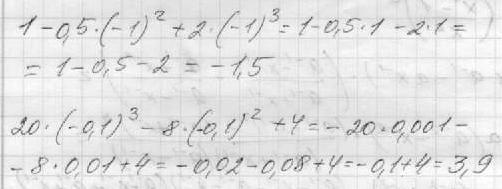 1 - 0,5 · (-1)² + 2 · (-1)³ = 1 - 0,5 · 1 - 2 · 1 =
= 1 - 0,5 - 2 = -1,5
20 · (-0,1)³ - 8 · (-0,1)² + 4 = - 20 · 0,001 -
- 8 · 0,01 + 4 = -0,02 - 0,08 + 4 = -0,1 + 4 = 3,9